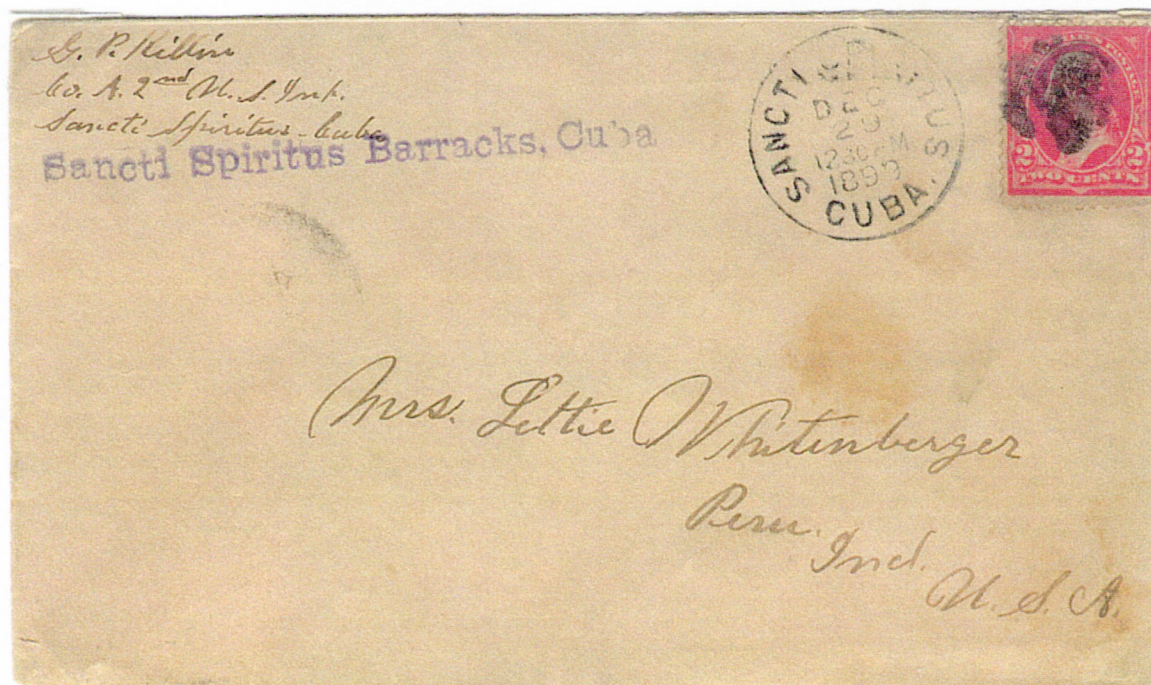 G. P. Killin
Co. A. 2nd U. S. Inf.
Sancti Spiritus - Cuba
Sancti Spiritus Barracks, Cuba
SANCTI SPIRITUS
DEC
29
1230 M
1899
CUBA.
2 2
TWO CENTS
Mrs. Lettie Whitenberger
Peru.
Ind.
U. S. A.